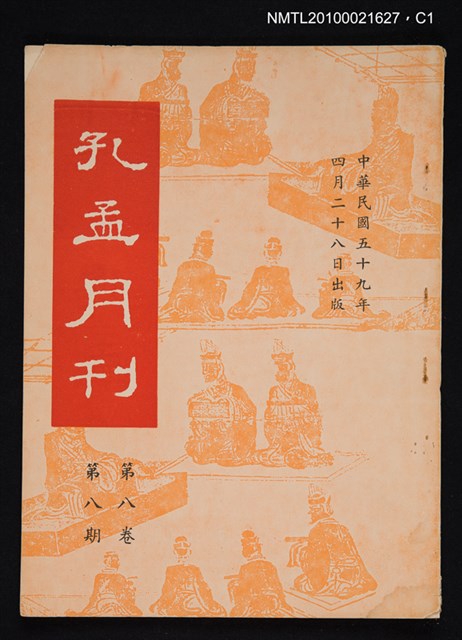 NMTL20100021627，C1
孔孟月刊
中華民國五十九年
四月二十八日出版
第八卷
第八期